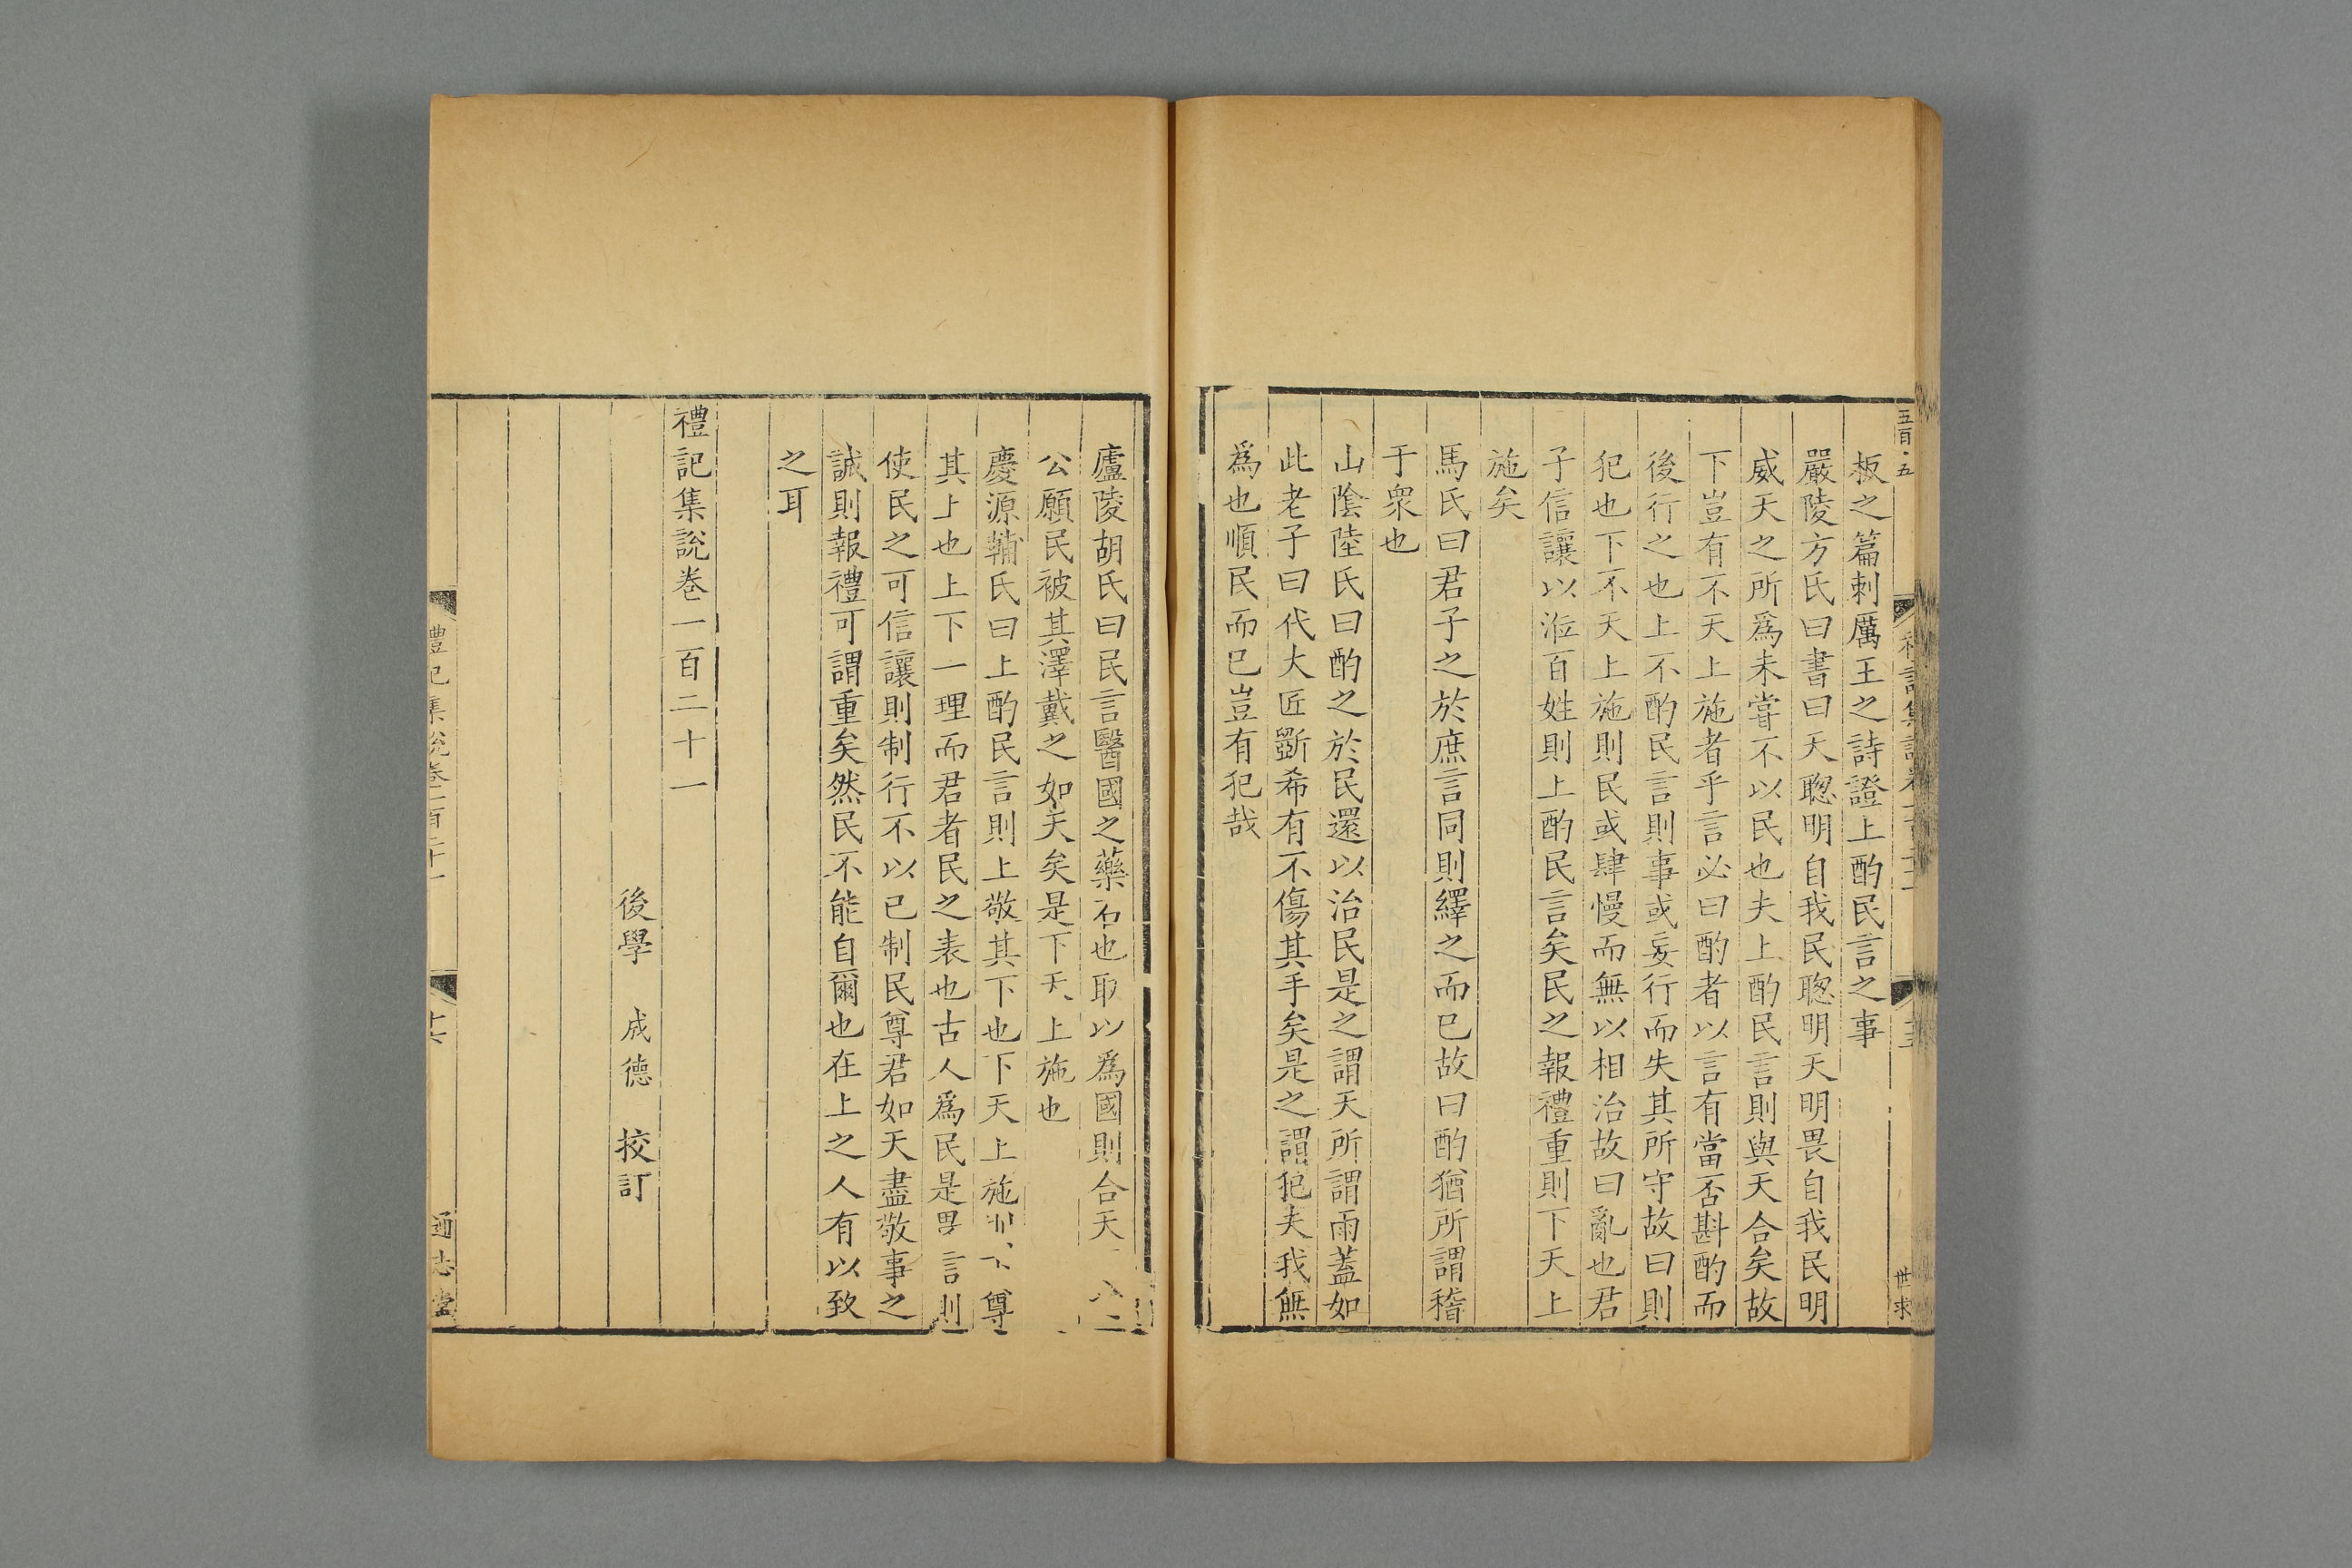 五百五
板之篇刺厲王之詩證上酌民言之事
嚴陵方氏曰書曰天聦明自我民聦明天明畏自我民明
威天之所爲未嘗不以民也夫上酌民言則與天合矣故
下豈有不天上施者乎言必曰酌者以言有當否斟酌而
後行之也上不酌民言則事或妄行而失其所守故曰則
犯也下不天上施則民或肆慢而無以相治故曰亂也君
子信讓以涖百姓則上酌民言矣民之報禮重則下天上
施矣
馬氏曰君子之於庶言同則繹之而已故曰酌猶所謂稽
于衆也
山陰陸氏曰酌之於民還以治民是之謂天所謂雨蓋如
此老子曰代大匠斲希有不傷其手矣是之謂犯夫我無
爲也順民而已豈有犯哉
世求
廬陵胡氏曰民言醫國之藥石也取以爲國則合天
公願民被其澤戴之如天矣是下天上施也
慶源輔氏曰上酌民言則上敬其下也下天上施則下尊
其上也上下一理而君者民之表也古人爲民是畏言則
使民之可信讓則制行不以已制民尊君如天盡敬事之
誠則報禮可謂重矣然民不能自爾也在上之人有以致
之耳
禮記集說卷一百二十一
後學 成德 挍訂
禮記集說卷一百二十一
通志堂